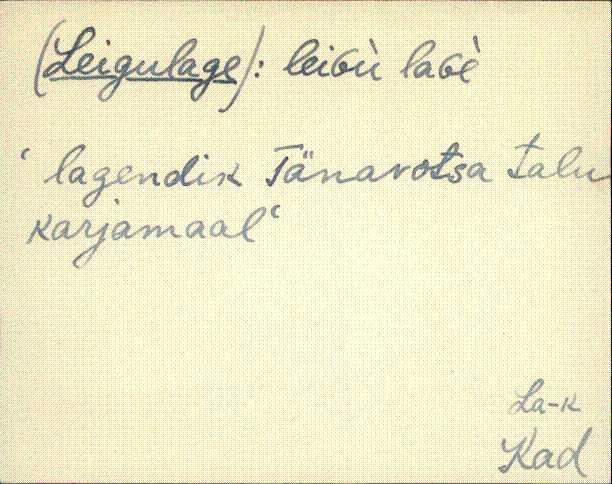 (Leigulage): leiɢù laɢè
‘ lagendik Tänavotsa talu
karjamaal‘
La-k
Kad